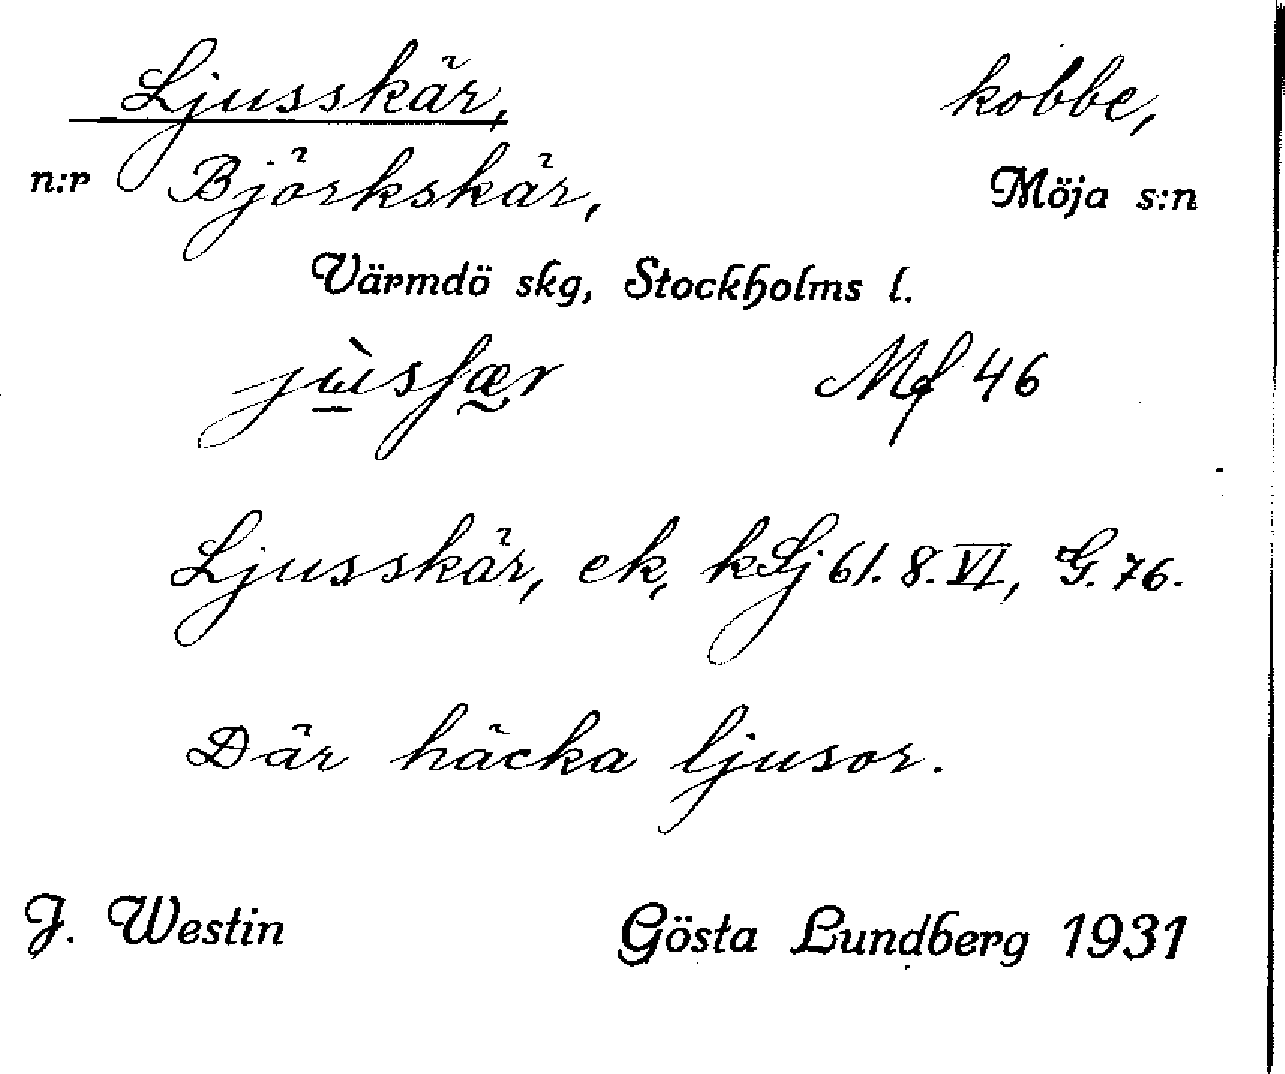 Ljusskär, kobbe,
n:r Björkskär, Möja s:n
Värmdö skg, Stockholms l.
Mf 46
Ljusskär, ek, kLj 61. 8. VI, G. 76.
Där häcka ljusor.
J. Westin Gösta Lundberg 1931